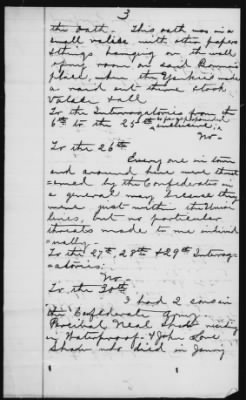 3
the Oath. This oath was in a
small valise with other papers
& things hanging on the wall
of my room on said Pennin
place, when the Yankees made
a raid and threw took
Valise & all
To the Interrogatories from the
6th to the 25th inclusive
No—
To the 26th
Every one in town
and around here were threat
-ened by the Confederates in
a general way because they
were just within the Union
lines, but no particular
threats made to me individ
ually—
To the 27th, 28th & 29th Interrog-
atories:
No—
To the 30th
I had 2 sons in
the Confederate Army.
Percival Neal Shaw residing
in Waterproof & John Love
Shaw who died in Jany